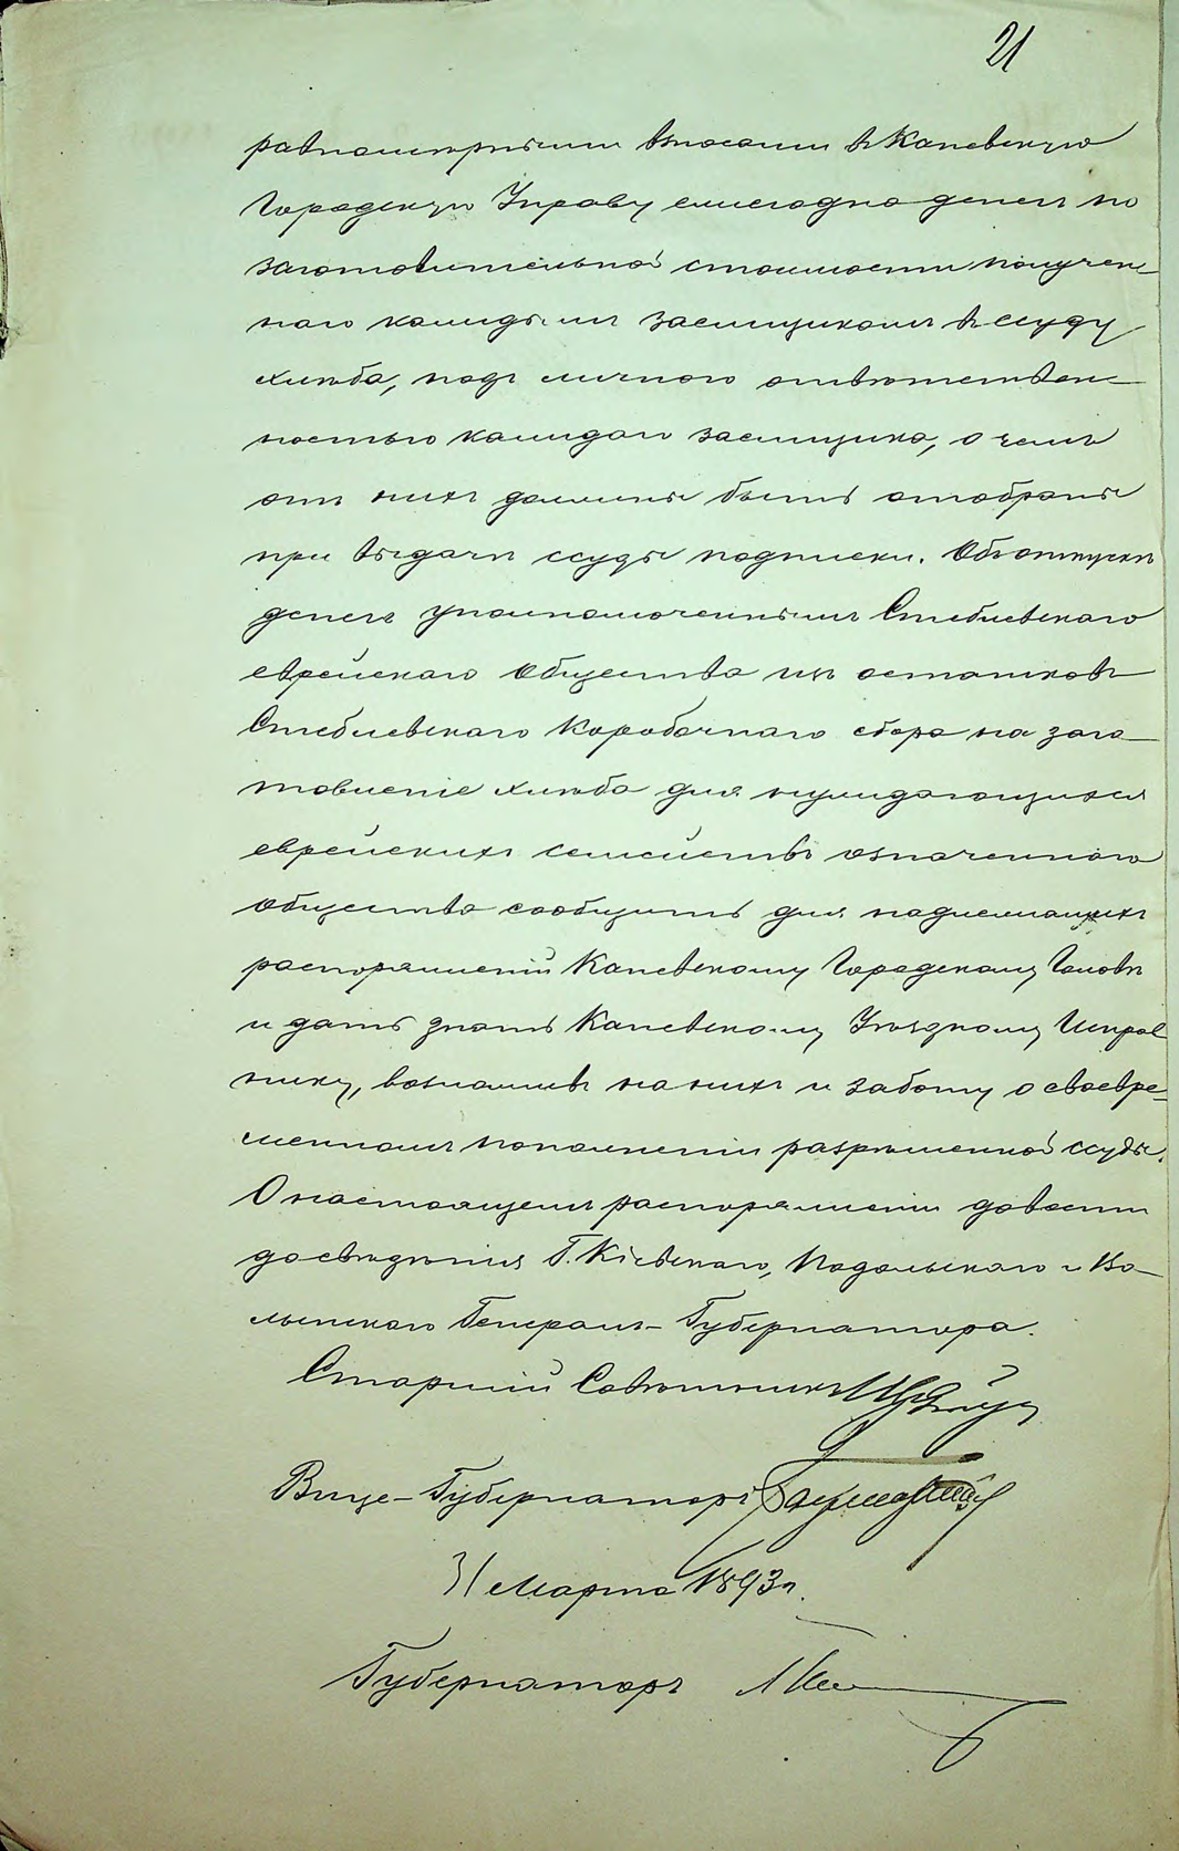 21
равномѣрными взносами въ Каневскую
Городскую Управу ежегодно денегъ по
заготовительной стоимости получен-
наго каждымъ заемщикомъ въ ссуду
хлѣба, подъ личною отвѣтствен-
ностью каждаго заемщика, о чемъ
отъ нихъ должны быть отобраны
при выдачѣ ссуды подписки. Объ отпускѣ
денегъ уполномоченнымъ Стеблевскаго
еврейскаго общества изъ остатковъ
Стеблевскаго коробочнаго сбора на заго-
товленіе хлѣба для нуждающихся
еврейскихъ семействъ означеннаго
общества сообщить для надлежащихъ
распоряженій Каневскому Городскому Головѣ
и дать знать Каневскому Уѣздному Исправ
нику, возложивъ на нихъ и заботу о своевре-
менномъ пополненіи разрѣшенной ссуды.
О настоящемъ распоряженіи довести
до свѣдѣнія Г. Кіевскаго, Подольскаго и Во-
лынскаго Генералъ-Губернатора.
Старшій Совѣтникъ
Вице-Губернаторъ
31 Марта 1893 г.
Губернаторъ